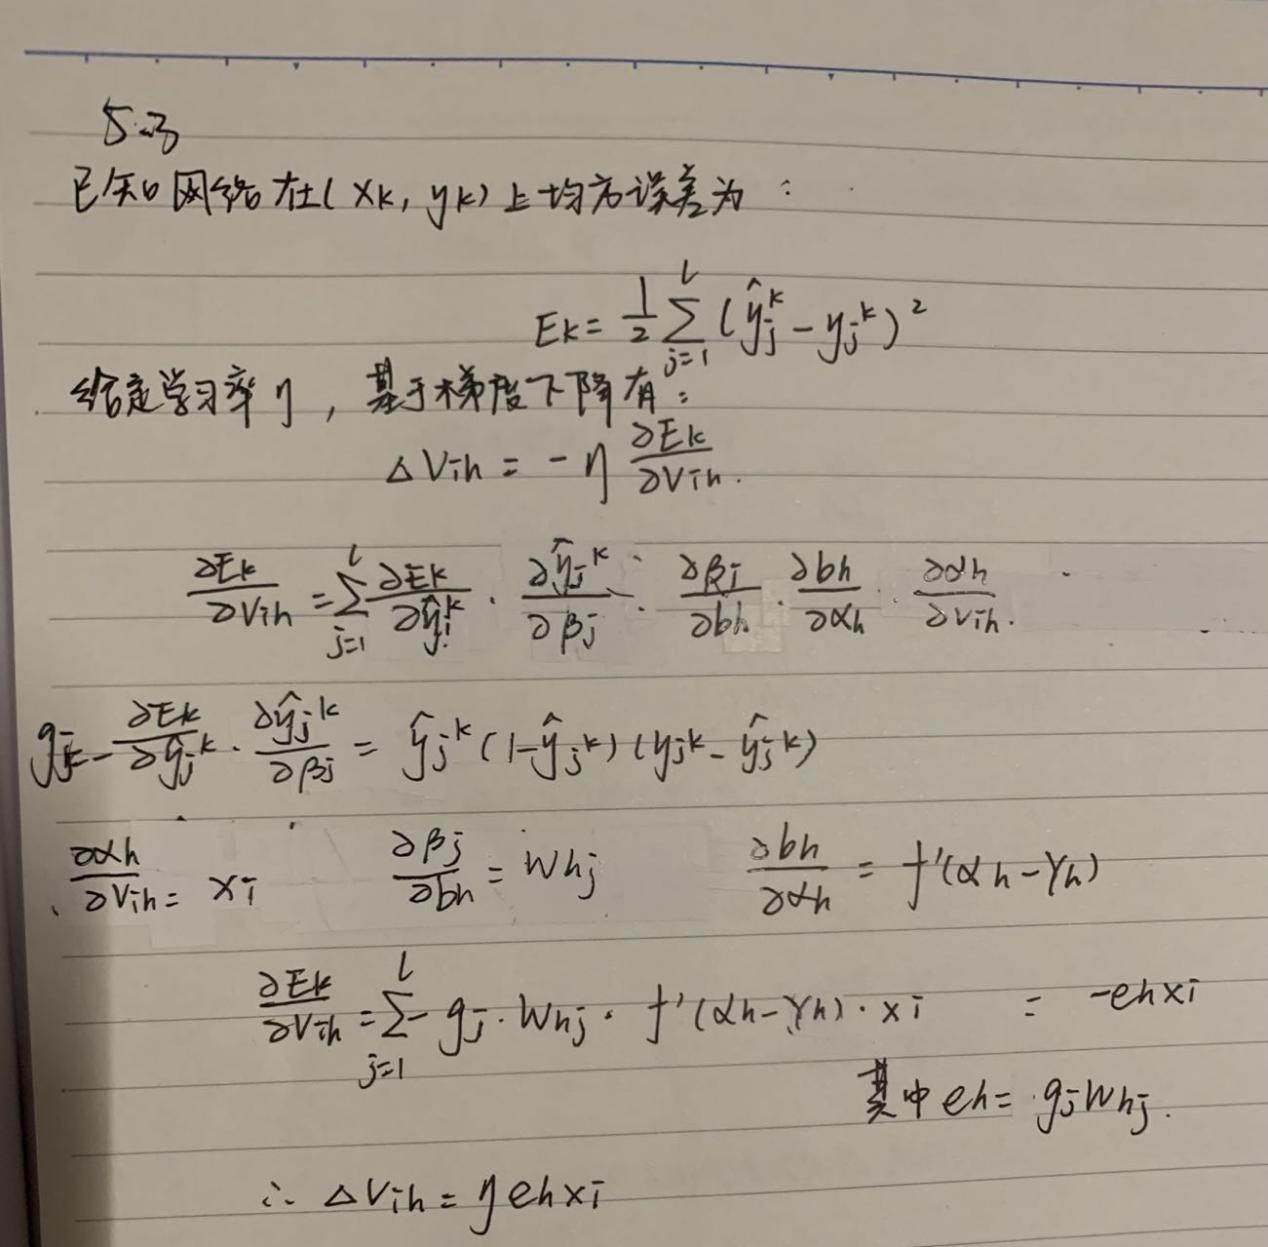 5.3
已知网络在(xk, yk)上均方误差为:
Ek = 1/2 ∑_{j=1}^{l} (ŷ_j^k − y_j^k)²
给定学习率η, 基于梯度下降有:
△Vih = −η ∂Ek/∂Vih.
∂Ek/∂Vih = ∑_{j=1}^{l} ∂Ek/∂ŷ_j^k · ∂ŷ_j^k/∂βj · ∂βj/∂bh · ∂bh/∂αh · ∂αh/∂Vih.
gj = −∂Ek/∂ŷ_j^k · ∂ŷ_j^k/∂βj = ŷ_j^k (1−ŷ_j^k) (y_j^k − ŷ_j^k)
∂αh/∂Vih = xi ∂βj/∂bh = Whj ∂bh/∂αh = f'(αh−γh)
∂Ek/∂Vih = ∑_{j=1}^{l} − gj · Whj · f'(αh−γh) · xi = −ehxi
其中 eh = gjWhj.
∴ △Vih = ηehxi